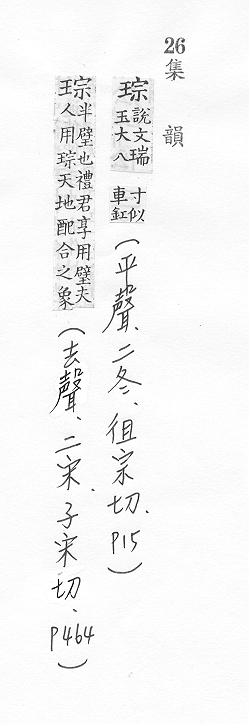 26 集韻
琮 說文瑞玉大八寸似車釭 (平聲、二冬、徂宗切、P15)
琮 半璧也禮君享用璧夫人用琮天地配合之象 (去聲、二宋、子宋切、P464)